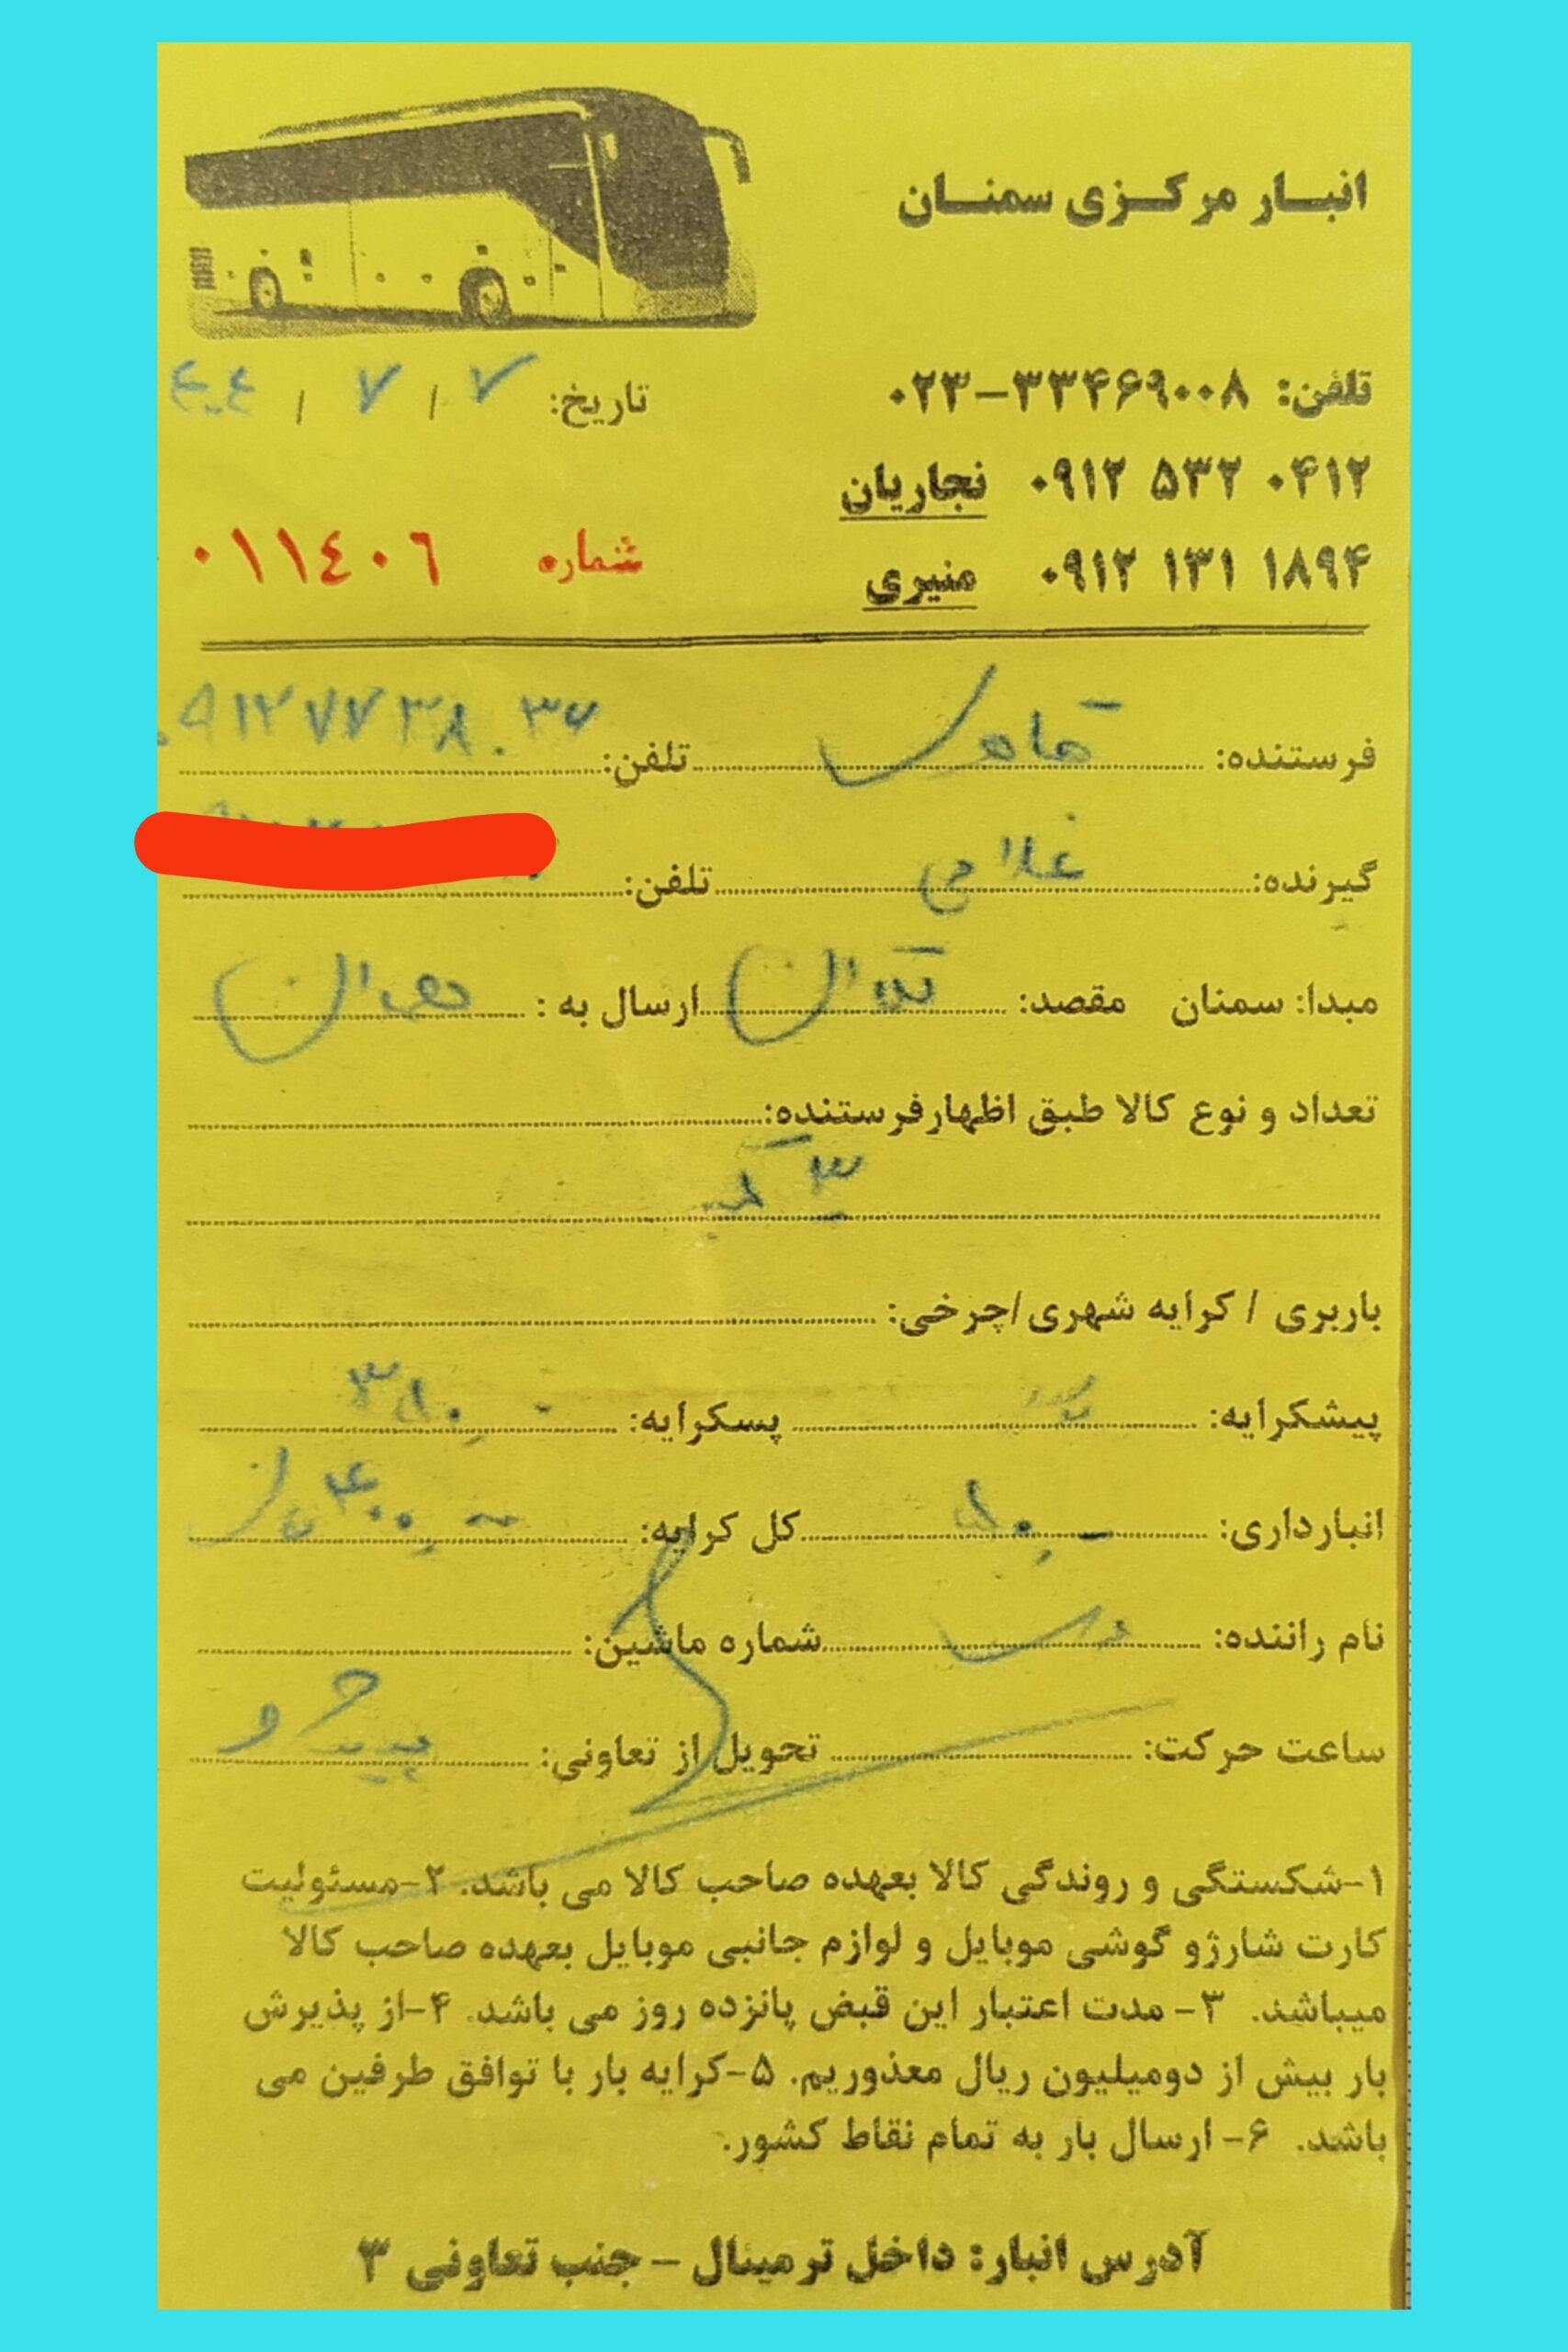 انبار مرکزی سمنان
تلفن: ۰۲۳-۳۳۴۶۹۰۰۸
تاریخ: ۷ / ۷ /
۰۹۱۲ ۵۳۲ ۰۴۱۲ نجاریان
شماره ۰۱۱٤۰٦
۰۹۱۲ ۱۳۱ ۱۸۹۴ منیری
فرستنده: تلفن:
گیرنده: غلامی تلفن:
مبدا: سمنان مقصد: تهران ارسال به : همدان
تعداد و نوع کالا طبق اظهارفرستنده:
۳
باربری / کرایه شهری/چرخی:
پیشکرایه: پسکرایه:
انبارداری: کل کرایه:
نام راننده: شماره ماشین:
ساعت حرکت: تحویل از تعاونی:
۱-شکستگی و روندگی کالا بعهده صاحب کالا می باشد. ۲-مسئولیت
کارت شارژو گوشی موبایل و لوازم جانبی موبایل بعهده صاحب کالا
میباشد. ۳- مدت اعتبار این قبض پانزده روز می باشد. ۴-از پذیرش
بار بیش از دومیلیون ریال معذوریم. ۵-کرایه بار با توافق طرفین می
باشد. ۶- ارسال بار به تمام نقاط کشور.
آدرس انبار: داخل ترمینال - جنب تعاونی ۳